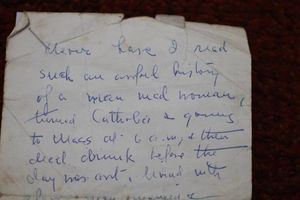 Never have I read
such an awful history
of a man mad woman,
turned Catholic & going
to Mass at 6 a.m, & then
dead drunk before the
day was out,